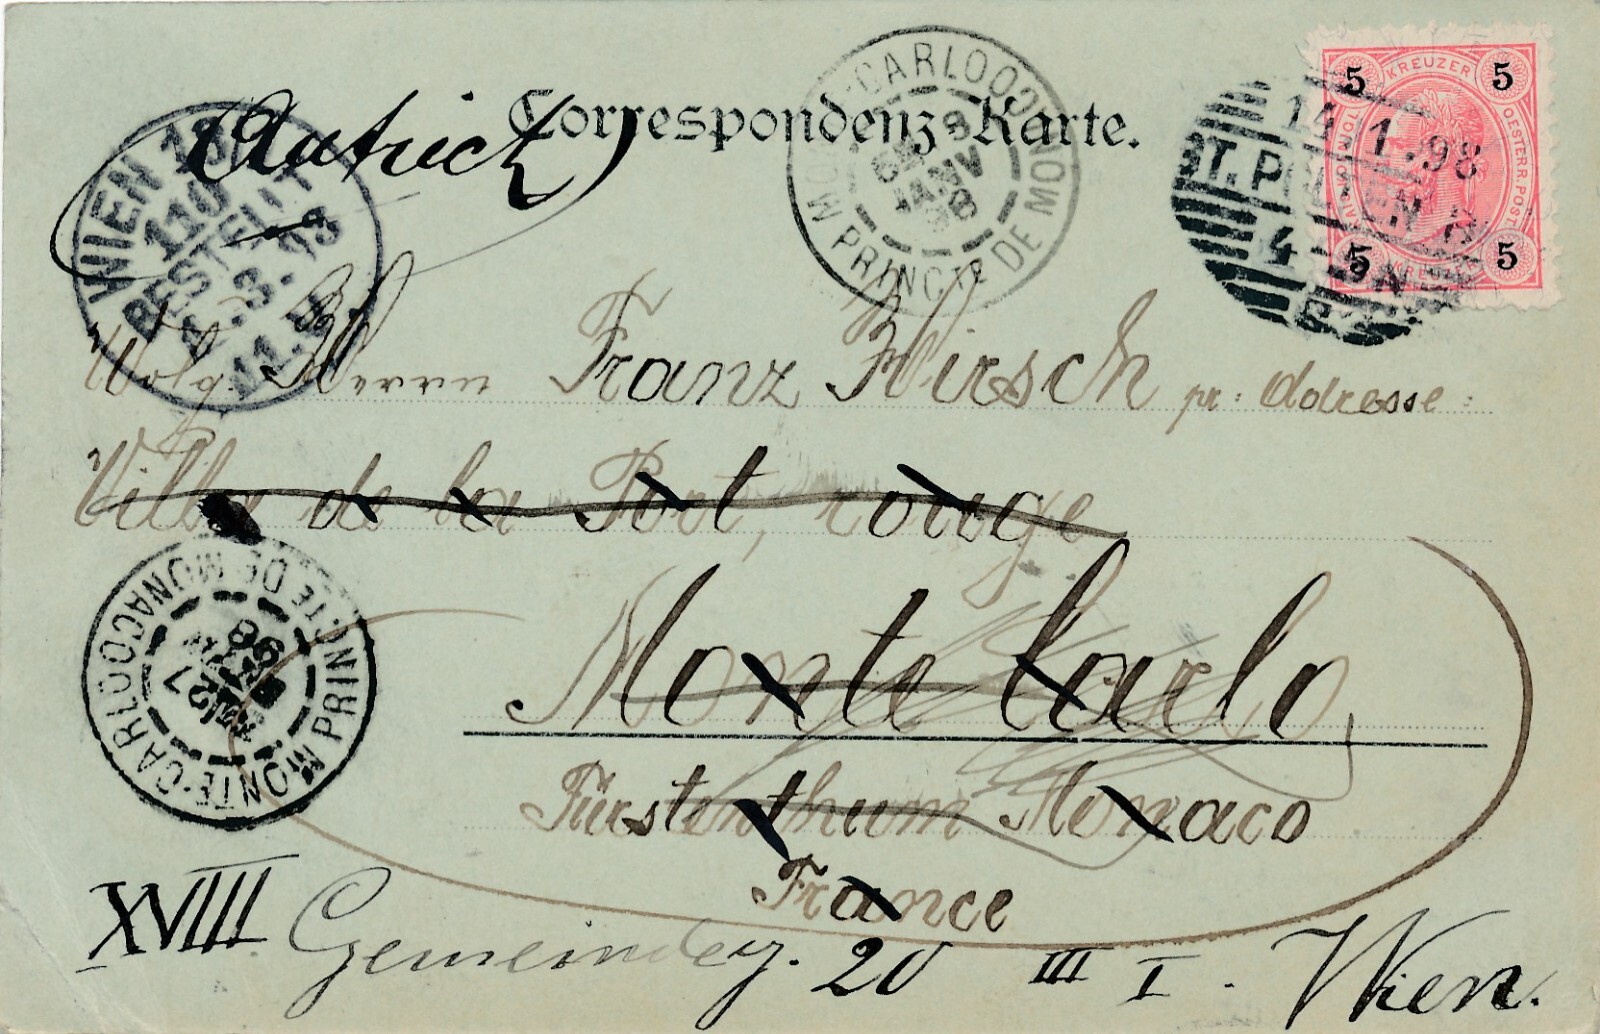 Correspondenz-Karte.
Autriche
WIEN 18
110
BESTELLT
MONTE-CARLO
PRINCTE DE MONACO
JANV
98
14 1.98
ST.PÖLTEN
4-5N
5 KREUZER 5
OESTERR.POST
5 5
Wolg. Herrn Franz Hirsch pr: Adresse:
Villa de la Port, rouge
Monte Carlo,
Fürstenthum Monaco
France
MONTE-CARLO
PRINCTE DE MONACO
27
98
XVIII Gemeindeg. 20 III I. Wien.